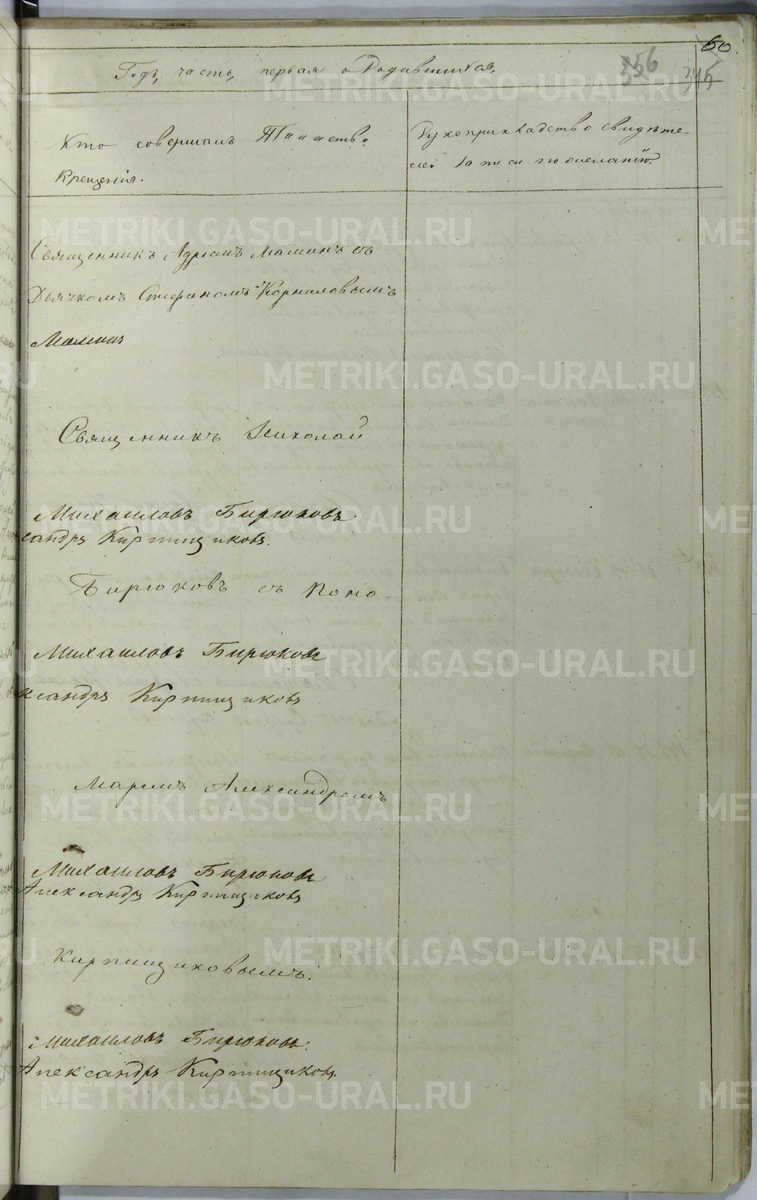 60.
356 315
Годъ, часть, первая о Родившихся,
Кто совершалъ Таинство
Крещенія.
Рукоприкладство свидѣте-
лей записи по желанію.
Священникъ Адріанъ Маминъ съ
Дьячкомъ Стефаномъ Корниловымъ
Маминъ
Священникъ Николай
Михаиловъ Бирюковъ
сандръ Кирпищиковъ.
Бирюковъ съ Поно
Михаиловъ Бирюковъ
ксандръ Кирпищиковъ
Маремъ Александромъ
Михаиловъ Бирюковъ
Александръ Кирпищиковъ
Кирпищиковымъ.
Михаиловъ Бирюковъ.
Александръ Кирпищиковъ.
METRIKI.GASO-URAL.RU